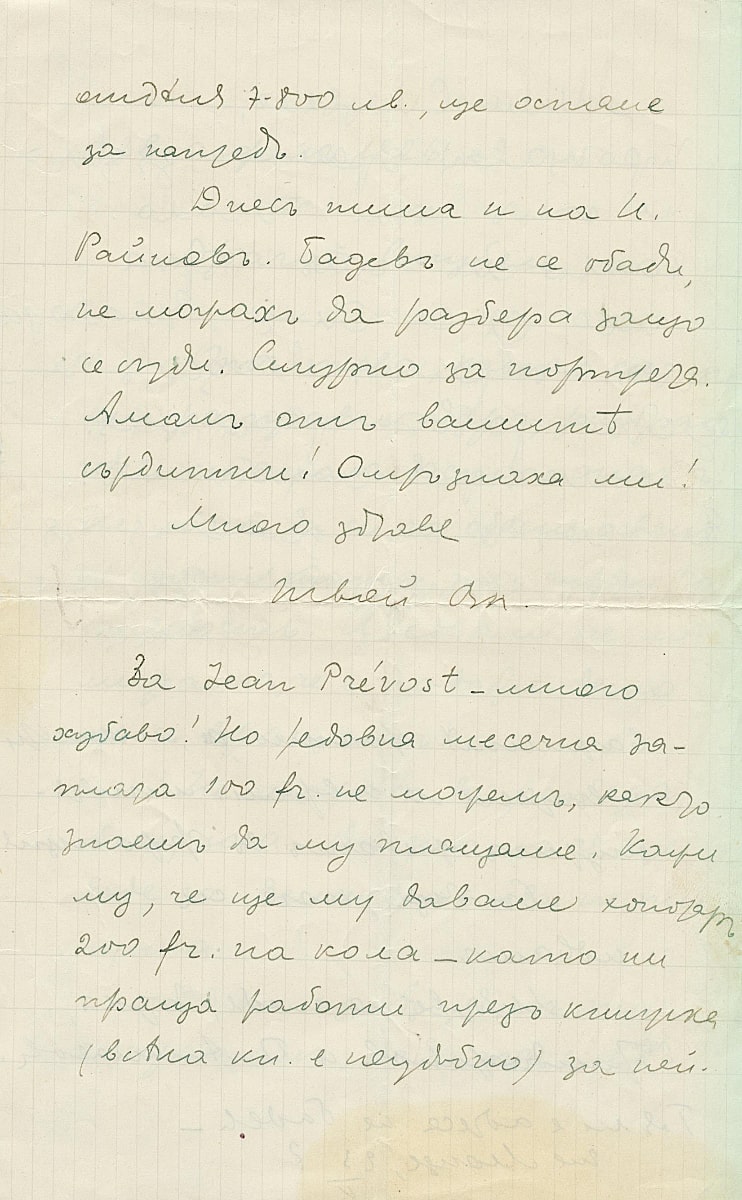 отдѣля 7-800 лв., ще остане
за напредъ.
Днесъ пиша и на Н.
Райновъ. Бадевъ не се обади,
не можахъ да разбера защо
се сърди. Сигурно за портрета.
Аманъ отъ вашитѣ
сърдитни! Омръзнаха ми!
Много здраве
твой Вл.
За Jean Prévost – много
хубаво! Но редовна месечна за-
плата 100 fr. не можемъ, както
знаешъ да му плащаме. Кажи
му, че ще му даваме хонораръ
200 fr. на кола – като ни
праща работи презъ книжка
(всѣка кн. е неудобно) за ней-